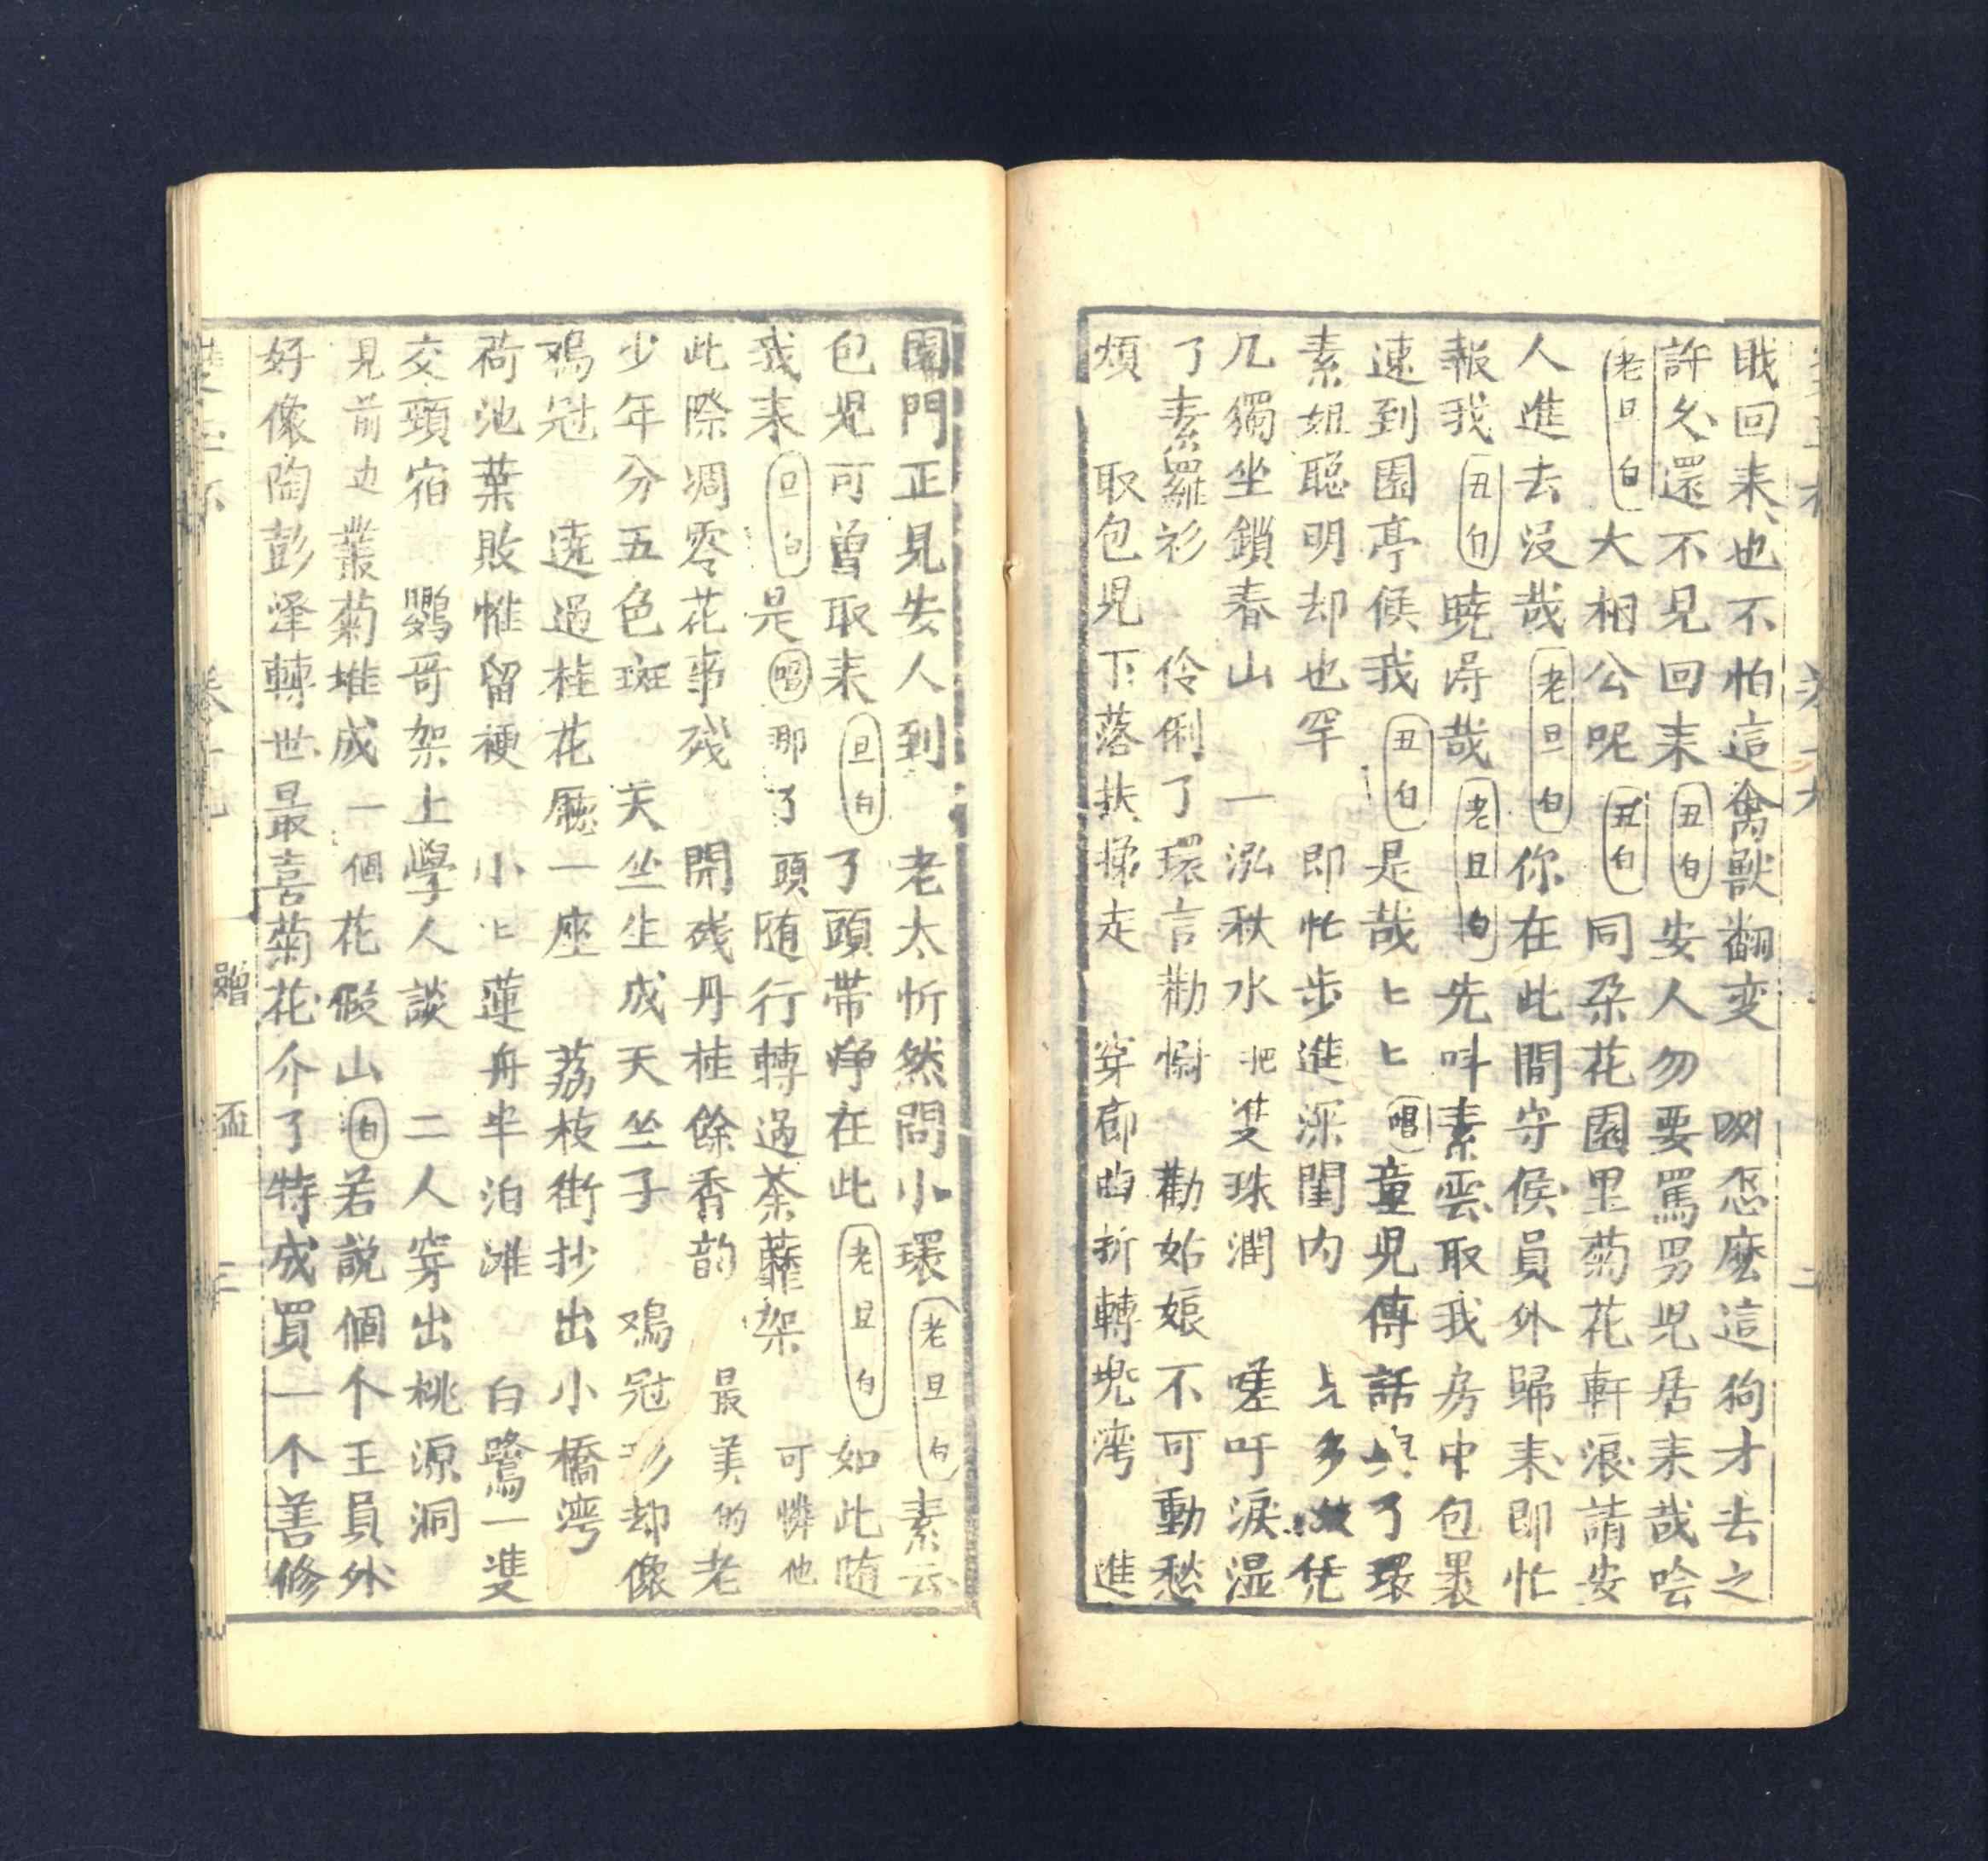 戝回来也不怕這禽獸翻变　咧怎麽這狗才去之
許久還不見回来丑白安人勿要罵男児居来哉唅
老旦白大相公呢丑白同朶花園里菊花軒浪請安
人進去没哉老旦白你在此間守候員外歸来即忙
報我丑白曉得哉老旦白先呌素雲取我房中包裹
速到園亭候我丑白是哉〻〻唱童児傳話與了環
素姐聰明却也罕　即忙步進深閨内　多　凭
几獨坐鎖春山　一泓秋水把雙珠潤　嗟吁淚湿
了素羅衫　伶俐了環言勸慰　勸姑娘不可動愁
煩　取包児下落扶梯走　穿廊曲折轉兜湾　進
園門正見安人到　老太忻然問小環老旦白素云
包児可曾取来旦白了頭帶净在此老旦白如此随
我来旦白是唱那了頭随行轉過荼蘼架　可憐他
此際凋零花事残　開残丹桂餘香韵　最美的老
少年分五色斑　天坐生成天坐子　鳮冠形却像
鳮冠　遶過桂花廳一座　荔枝街抄出小橋湾
荷池葉敗惟留梗　小〻蓮舟半泊滩　白鷺一雙
交頸宿　鸚哥架上學人談　二人穿出桃源洞
見前边叢菊堆成一個花假山白若説個个王員外
好像陶彭澤轉世最喜菊花介了特成買一个善修
卷十九　贈盃　三